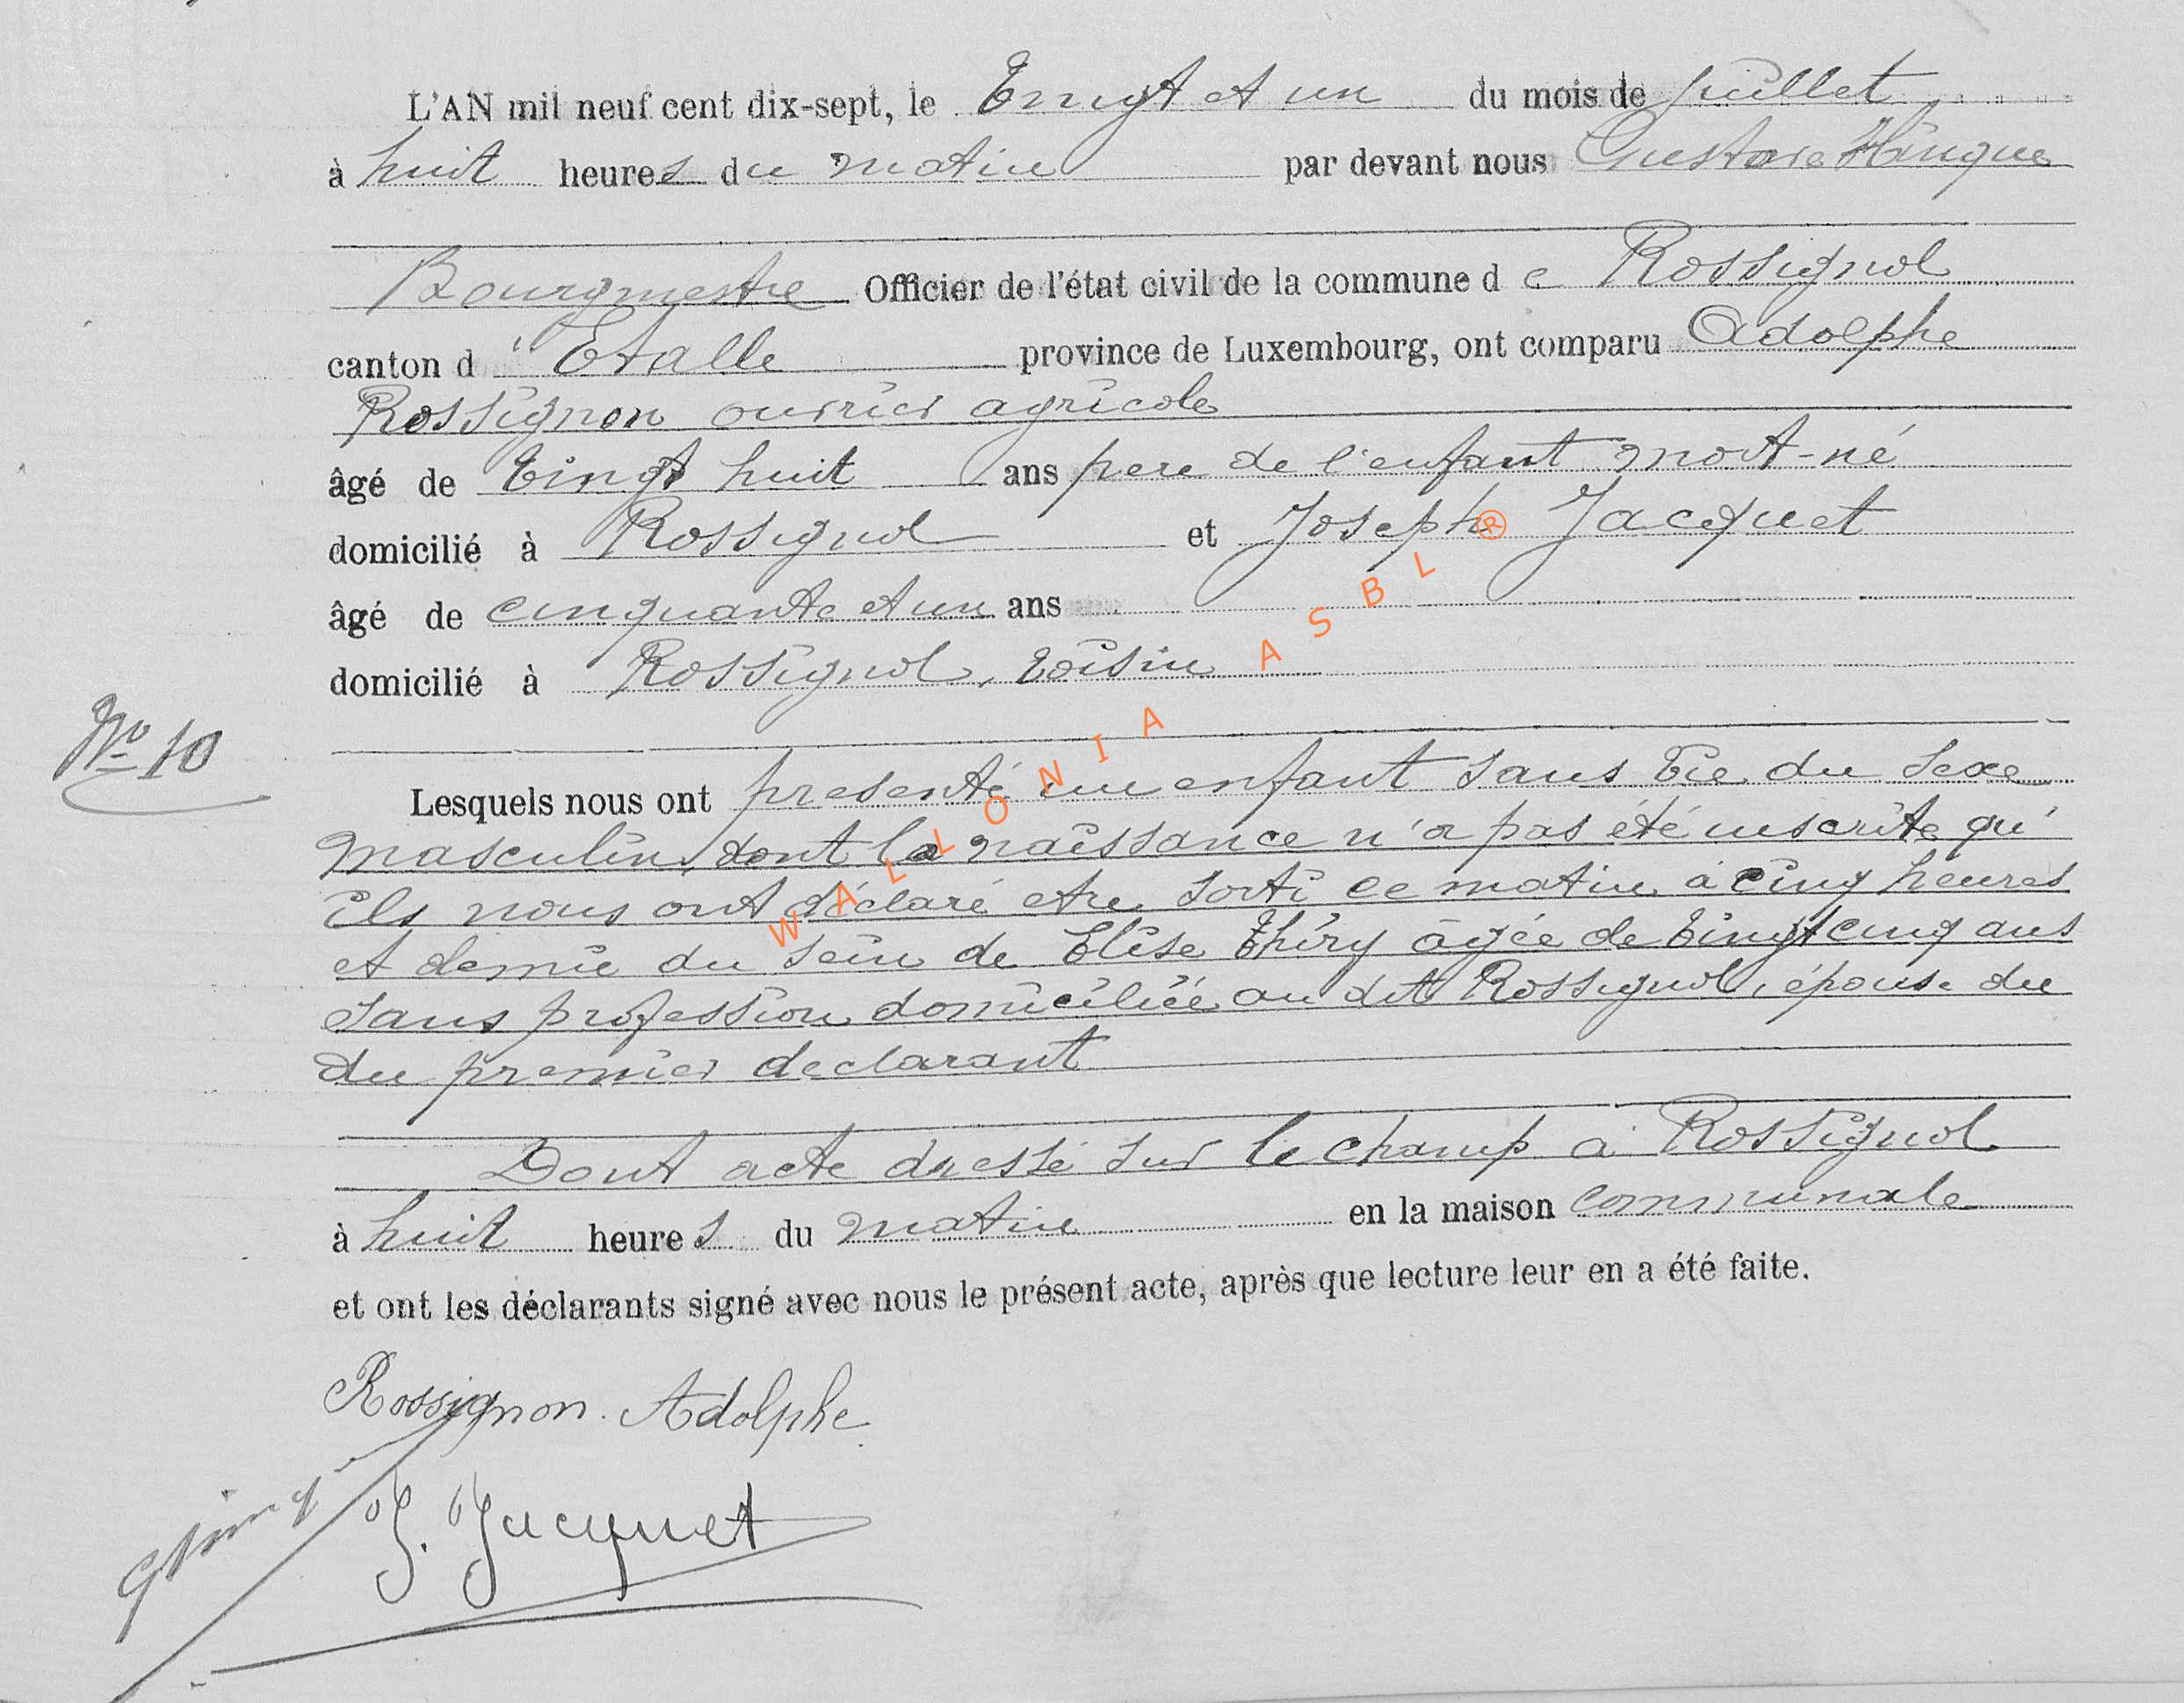 L'AN mil neuf cent dix-sept, le Vingt et un du mois de juillet
à huit heures du matin par devant nous Gustave Hinque
Bourgmestre Officier de l'état civil de la commune de Rossignol
canton d'Etalle province de Luxembourg, ont comparu Adolphe
Rossignon ouvrier agricole
âgé de Vingt huit ans pere de l'enfant mort-né
domicilié à Rossignol et Joseph Jacquet
âgé de cinquante et un ans
domicilié à Rossignol, voisin
No 10
Lesquels nous ont presenté un enfant sans vie du sexe
masculin, dont la naissance n'a pas été inscrite qu'
ils nous ont déclaré etre sorti ce matin à cinq heures
et demie du sein de Elise Thiry agée de vingt cinq ans
sans profession domiciliée au dit Rossignol, épouse du
du premier declarant
Dont acte dressé sur le champ à Rossignol
à huit heures du matin en la maison communale
et ont les déclarants signé avec nous le présent acte, après que lecture leur en a été faite.
Rossignon. Adolphe
J. Jacquet
WALLONIA ASBL ®